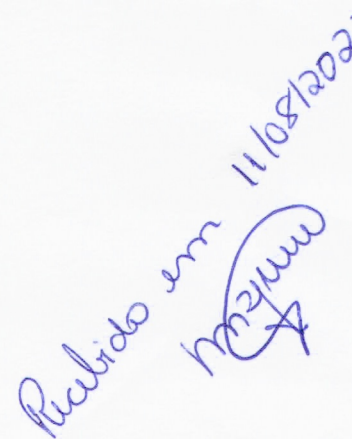 Recebido em 11/08/202